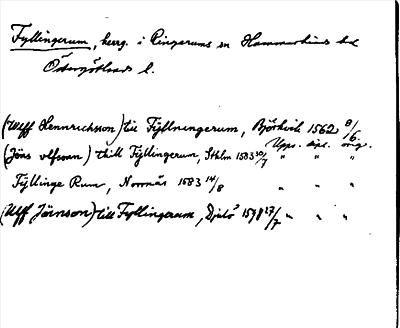 Fyllingerum, herrg. i Ringarums sn Hammarkinds hd
Östergötlands l.
(Ulff Hennrichsson) till Fÿllnengerum, Björkvik 1562 8/6. Upps. dipl. orig.
(Jöns olfsson) thill Fÿllingerum, Sthlm 1583 30/7 " " "
Fÿllinge Rum, Norrnäs 1583 14/8 " " "
(Ulff Jönson) till Fyllingerum, 1598 27/7 " " "